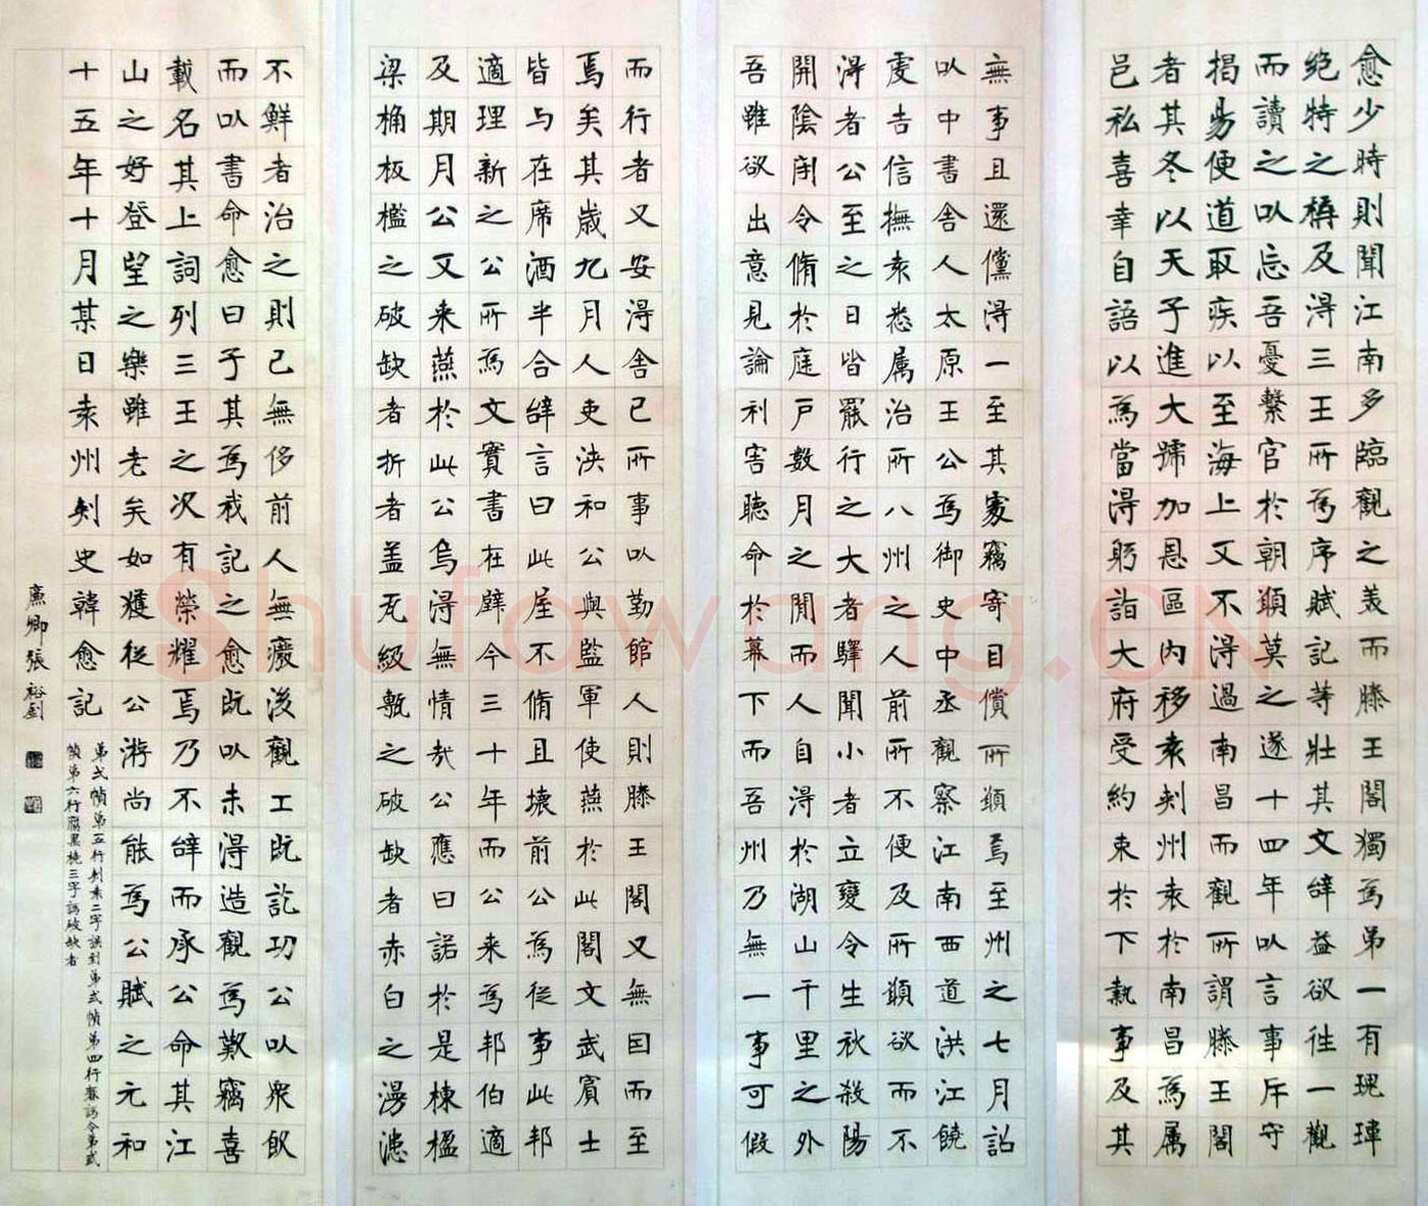 愈少時則聞江南多臨觀之美而滕王閣獨為第一有瑰瑋
絕特之稱及得三王所為序賦記等壯其文辭益欲往一觀
而讀之以忘吾憂繫官於朝願莫之遂十四年以言事斥守
揭昜便道取疾以至海上又不得過南昌而觀所謂滕王閣
者其冬以天子進大號加恩區內移袁刾州袁於南昌為属
邑私喜幸自語以為當得躬詣大府受約束於下執事及其
無事且還儻得一至其處竊寄目償所願焉至州之七月詔
以中書舍人太原王公為御史中丞觀察江南西道洪江饒
虔吉信撫袁悉属治所八州之人前所不便及所願欲而不
得者公至之日皆罷行之大者驛聞小者立變令生秋殺陽
開陰闭令脩於庭戶數月之閒而人自得於湖山千里之外
吾雖欲出意見論利害聽命於幕下而吾州乃無一事可假
而行者又安得舍己所事以勤館人則滕王閣又無因而至
焉矣其歲九月人吏浹和公與監軍使燕於此閣文武賓士
皆与在席酒半合辭言曰此屋不脩且壞前公為從事此邦
適理新之公所為文實書在壁今三十年而公来為邦伯適
及期月公又来燕於此公烏得無情哉公應曰諾於是棟楹
梁桷板檻之破缺者折者盖瓦級甎之破缺者赤白之漫漶
不鮮者治之則已無侈前人無廢後觀工既訖功公以衆飲
而以書命愈曰子其為我記之愈既以未得造觀為歎竊喜
載名其上詞列三王之次有榮耀焉乃不辭而承公命其江
山之好登望之樂雖老矣如獲從公游尚能為公賦之元和
十五年十月某日袁州刾史韓愈記
第弍幀第五行刾袁二字誤到第弍幀第四行春誤令第弍
幀第六行腐黑撓三字誤破缺者
廉卿張裕釗
Shufawang.CN